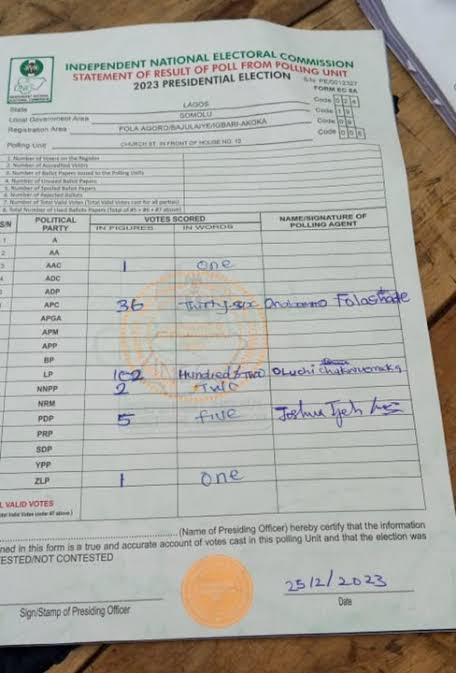 INDEPENDENT NATIONAL ELECTORAL COMMISSION
STATEMENT OF RESULT OF POLL FROM POLLING UNIT
2023 PRESIDENTIAL ELECTION
S/N: PE/0012327
FORM EC 8A
State LAGOS Code 024
Local Government Area SOMOLU Code
Registration Area FOLA AGORO/BAJULAIYE/IGBARI-AKOKA Code
Polling Unit CHURCH ST. IN FRONT OF HOUSE NO. 12 Code
1. Number of Voters on the Register
2. Number of Accredited Voters
3. Number of Ballot Papers issued to the Polling Unit
4. Number of Unused Ballot Papers
5. Number of Spoiled Ballot Papers
6. Number of Rejected Ballots
7. Number of Total Valid Votes (Total Valid Votes cast for all parties)
8. Total Number of Used Ballots Papers (Total of #5 + #6 + #7 above)
S/N POLITICAL PARTY VOTES SCORED NAME/SIGNATURE OF POLLING AGENT
IN FIGURES IN WORDS
1 A
2 AA
3 AAC 1 one
4 ADC
ADP
APC 36 Thirty-six Folashade
APGA
APM
APP
BP
LP 102 Hundred & Two Oluchi
NNPP 2 Two
NRM
PDP 5 five Joshua
PRP
SDP
YPP
ZLP 1 one
L VALID VOTES
otal Valid Votes under #7 above)
(Name of Presiding Officer) hereby certify that the information
ned in this form is a true and accurate account of votes cast in this polling Unit and that the election was
TESTED/NOT CONTESTED
25/2/2023
Sign/Stamp of Presiding Officer Date